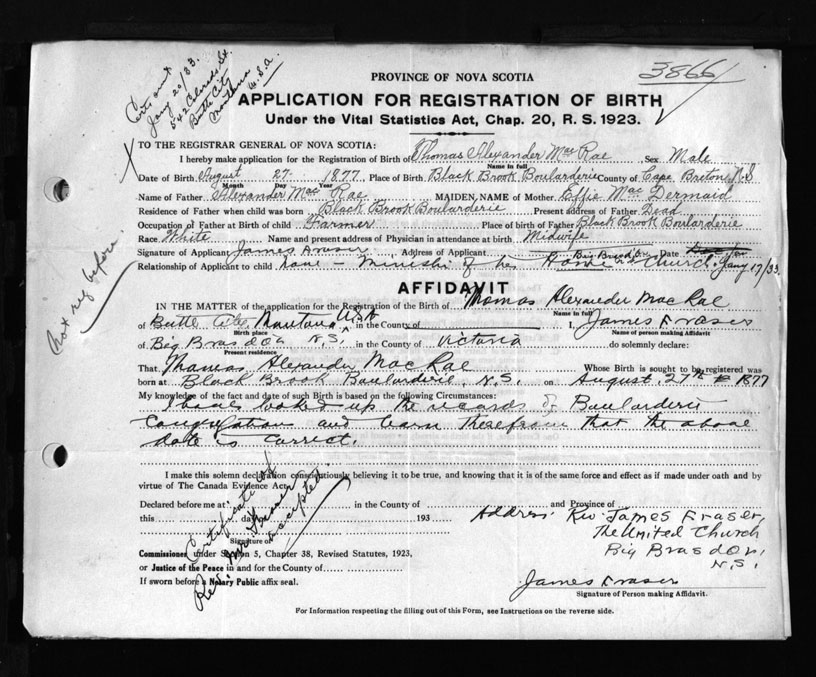 3866
PROVINCE OF NOVA SCOTIA
APPLICATION FOR REGISTRATION OF BIRTH
Under the Vital Statistics Act, Chap. 20, R. S. 1923.
Jany 20/33.
Butte City
Montana
U.S.A.
TO THE REGISTRAR GENERAL OF NOVA SCOTIA:
I hereby make application for the Registration of Birth of Thomas Alexander MacRae Sex Male
Name in full
Date of Birth August 27 1877 Place of Birth Black Brook Boularderie County of Cape Breton, N.S
Month Day Year
Name of Father Alexander MacRae MAIDEN, NAME of Mother Effie MacDermaid
Residence of Father when child was born Black Brook Boularderie Present address of Father Dead
Occupation of Father at Birth of child Farmer Place of birth of Father Black Brook Boularderie
Race White Name and present address of Physician in attendance at birth Midwife
Signature of Applicant James Fraser Address of Applicant Big Bras d'or Date
Relationship of Applicant to child none - Minister of his Home Church. Jany 17/33
Not reg before.
AFFIDAVIT
IN THE MATTER of the application for the Registration of the Birth of Thomas Alexander MacRae
Name in full
of Butte City Montana USA in the County of I, James Fraser
Birth place Name of person making Affidavit
of Big Bras dor N.S. in the County of Victoria do solemnly declare:
Present residence
That Thomas Alexander MacRae Whose Birth is sought to be registered was
born at Black Brook Boularderie, N.S. on August 27th 1877
My knowledge of the fact and date of such Birth is based on the following Circumstances:
I have looked up the records of Boularderie
Congregation and learn therefrom that the above
date is correct.
I make this solemn declaration conscientiously believing it to be true, and knowing that it is of the same force and effect as if made under oath and by
virtue of The Canada Evidence Act.
Declared before me at in the County of and Province of
this day 193
Signature of
Commissioner under Section 5, Chapter 38, Revised Statutes, 1923,
or Justice of the Peace in and for the County of
If sworn before a Notary Public affix seal.
Certification of
Rev. Mr. Fraser
accepted.
Address: Rev. James Fraser,
The United Church
Big Bras dor,
N.S.
James Fraser
Signature of Person making Affidavit.
For Information respecting the filling out of this Form, see Instructions on the reverse side.